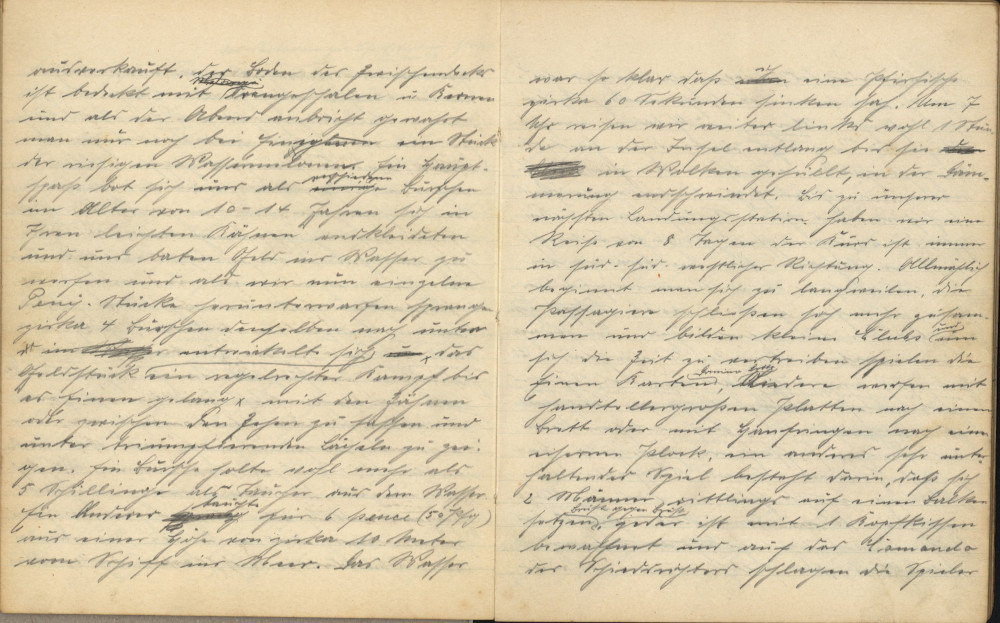 ausverkauft. der Boden des Zwischendecks
ist bedeckt mit Orangeschalen u Kernen
und als der Abend anbricht gewahrt
man nur noch bei Jenigen ein Stück
der riesigen Wassermelonen. Ein Haupt-
spaß bot sich uns als verschiedene Burschen
im Alter von 10-14 Jahren sich in
Ihren leichten Kähnen endkleideten
und uns baten Geld ins Wasser zu
werfen und als wir nun einzelne
Penij. Stücke herunterwarfen sprangen
zirka 4 Burschen denselben nach, unter
im entwickelte sich das
Geldstück ein regelrechter Kampf bis
es Einem gelang mit den Zähnen
oder zwischen den Zehen zu fassen und
unter triumpfierenden Lächeln zu zei-
gen. Ein Bursche holte wohl mehr als
5 Schillinge als Taucher aus dem Wasser
Ein Anderer tauchte für 6 pence (50 Pfg)
aus einer Höhe von zirka 10 Meter
vom Schiff ins Meer. Das Wasser
war so klar daß ich ihn eine Pfirsische
zirka 60 Sekunden sinken sah. Um 7
Uhr reisen wir weiter links wohl 1 Stun-
de an der Insel entlang bis sie
in Wolken gehüllt, in der Däm-
merung endschwindet. Bis zu unserer
nächsten Landungsstation haben wir eine
Reise von 8 Tagen der Kurs ist immer
in süd-süd-westlicher Richtung. Allmählich
beginnt man sich zu langweilen, die
Passagiere schließen sich mehr zusam-
men und bilden kleine Clubs und um
sich die Zeit zu vertreiben spielen die
Einen Karten, Andere werfen mit
handtellergroßen Platten nach einem
Brett oder mit Hanfringen nach einem
eisernen Plock, ein anderes sehr unter-
haltendes Spiel besteht darin, daß sich
2 Männer rittlings auf einen Balken
setzen, Brust gegen Brust jeder ist mit 1 Kopfkissen
bewaffnet und auf das Comando
des Schiedsrichters schlagen die Spieler